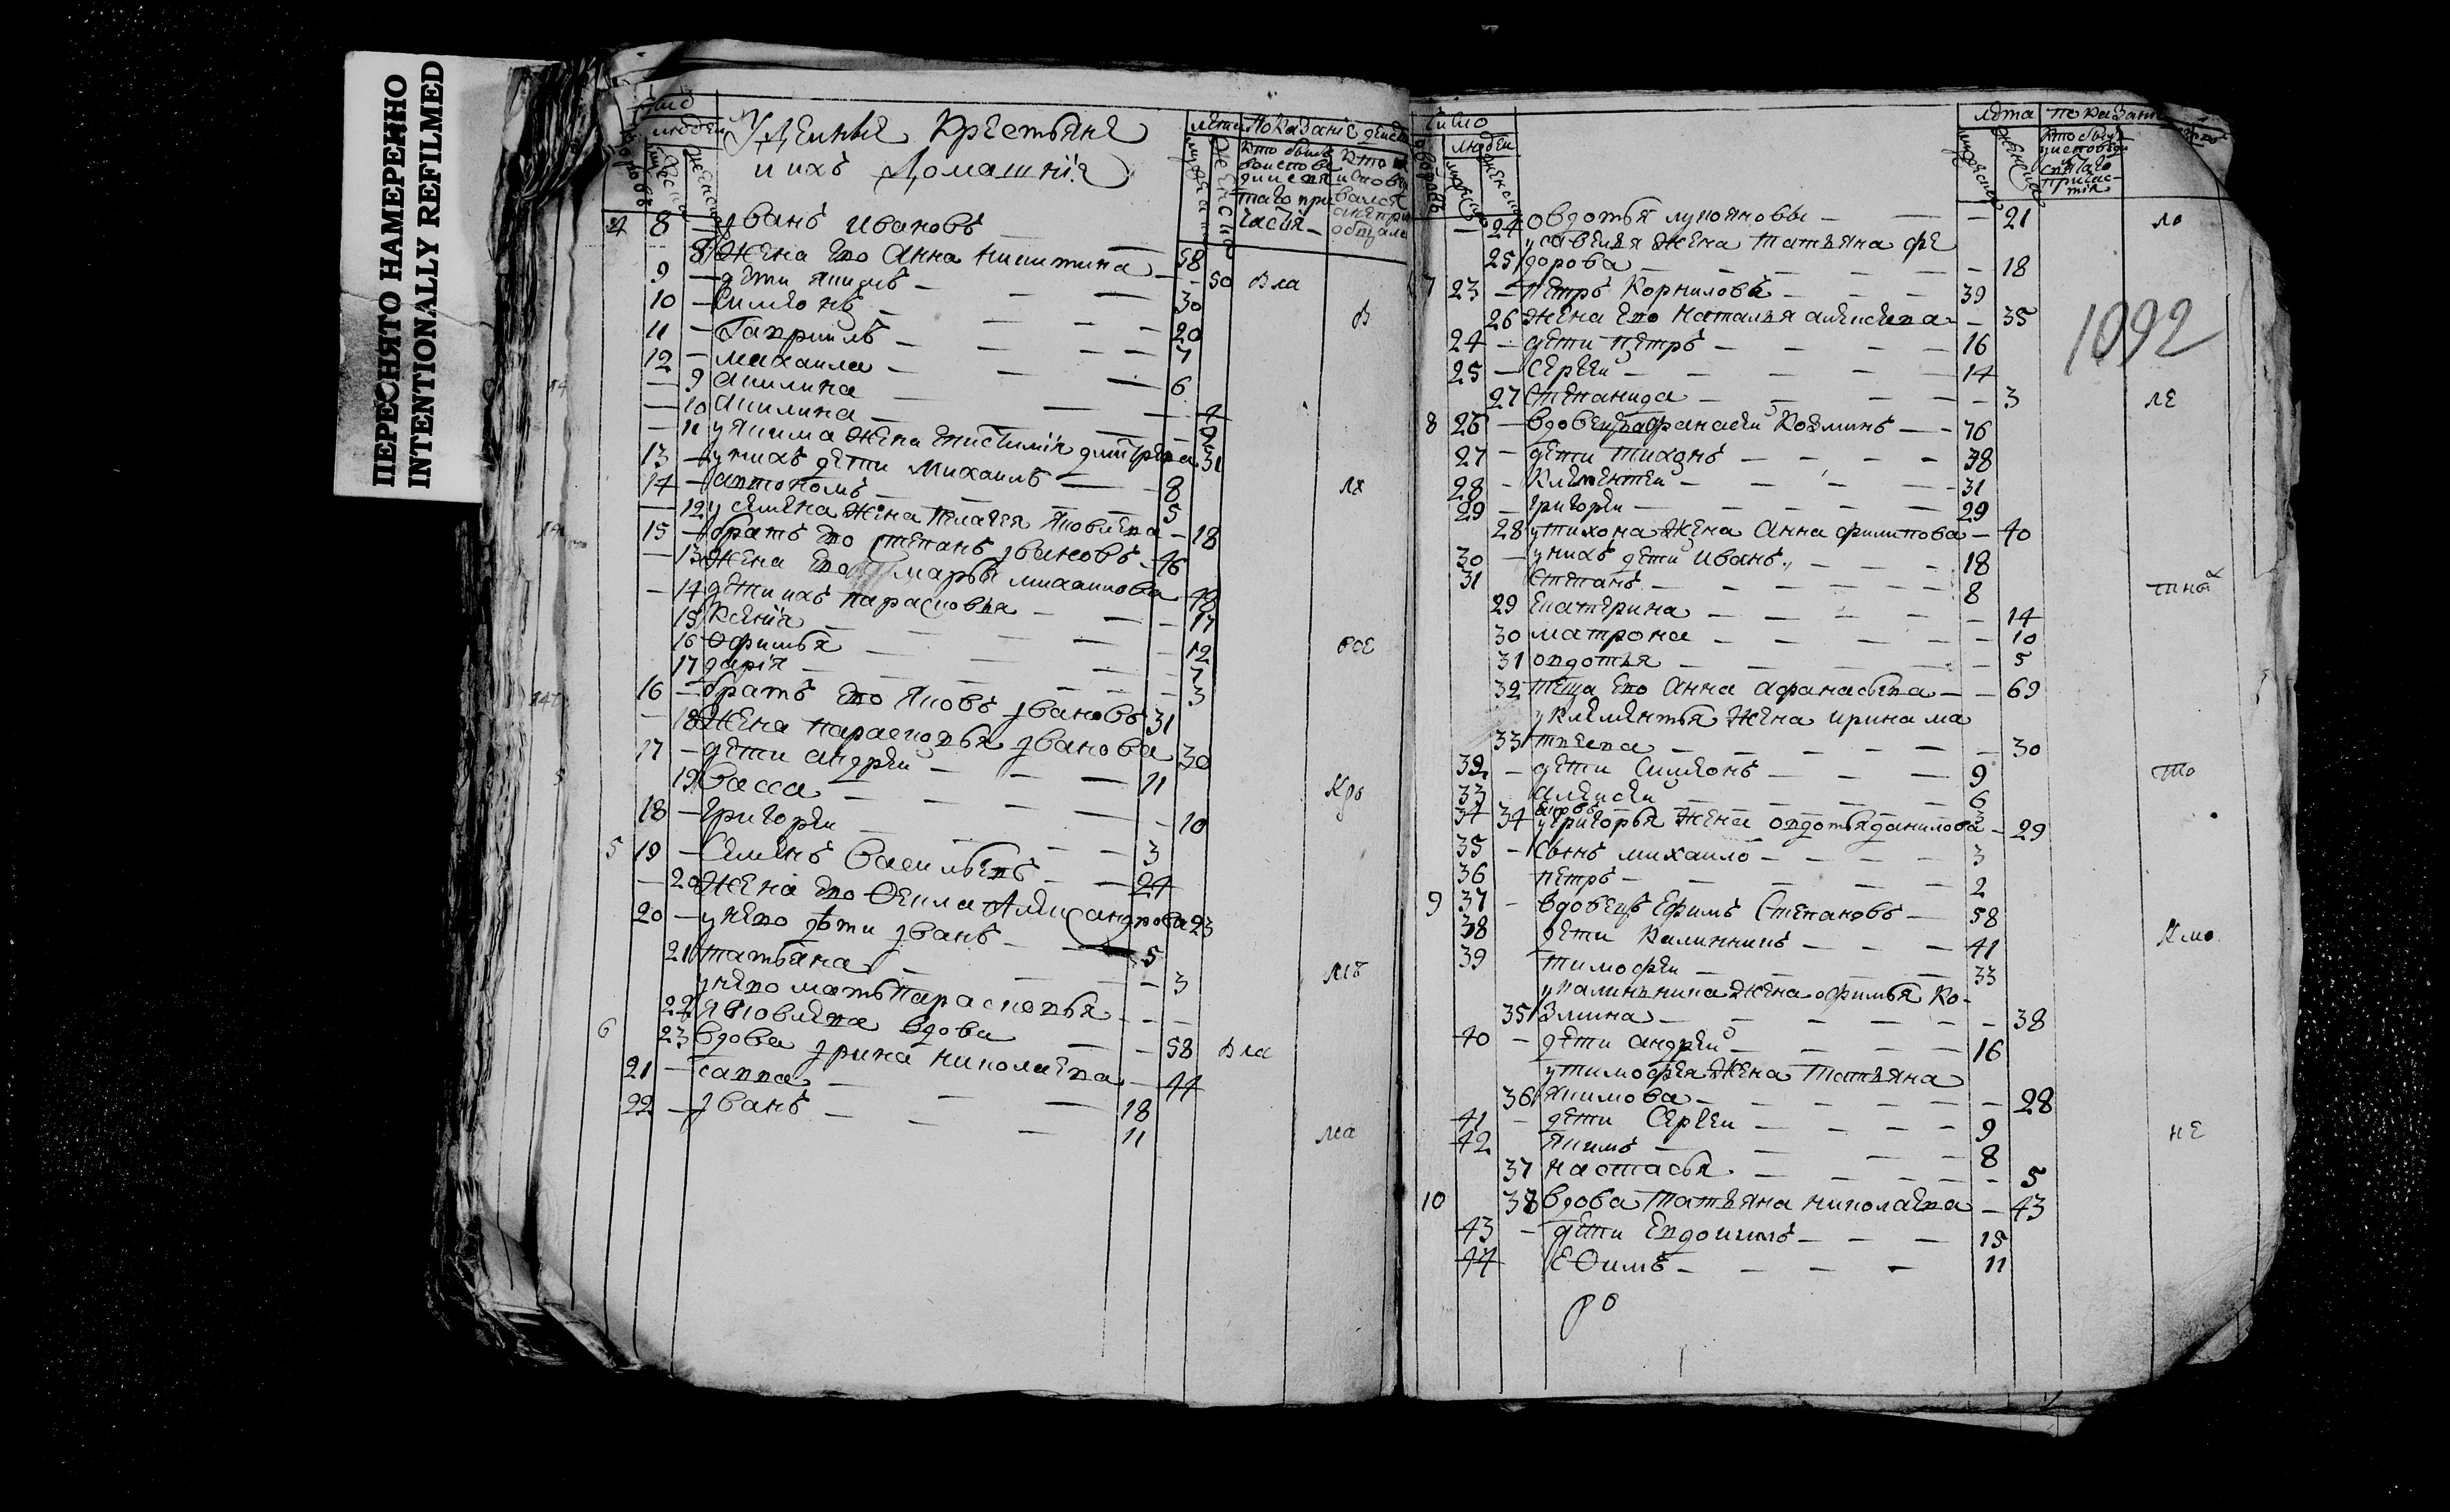 ПЕРЕСНЯТО НАМЕРЕННО
INTENTIONALLY REFILMED
Удельныя Крестьяне
и ихъ Домашнія
4 8 — Іванъ Ивановъ — 58
— 8 Жена ево Анна Никитина — 50 вла
9 — дети Якимъ — 30
10 — Симионъ — 20
11 — Гавриилъ — 7
12 — Михаила — 6
— 9 Акилина
— 10 Акилина
— 11 у Якима жена Епистимія дмитрева 31
13 — у нихъ дети Михаилъ — 8
14 — автономъ — 5
— 12 у Семена жена Пелагея Яковлева — 18
15 — братъ ево Степанъ Івановъ — 46
— 13 Жена ево Марья михаилова
— 14 дети ихъ Парасковья — 17
15 Ксенія — 12
16 Офимья — 7
17 дарія — 3
16 — братъ ево Яковъ Івановъ 31
— 18 Жена Парасковья Іванова 30
17 — дети андреи — 11
19 Васса — 10
18 — Григореи — 3
5 19 — Семенъ Васильевъ — 24
— 20 Жена ево Фекла Александрова 23
20 — у нево дети Іванъ — 5
21 татьяна — 3
у нево мать Парасковья
22 Яковлева вдова — 58 вла
6 23 вдова Ірина николаева — 44
21 — савва — 18
22 — Іванъ — 11
число
людей
лета показані
1092
— 24 овдотья лукояновы — 21
у савелья Жена Татьяна фе
25 дорова — 18
7 23 — Петръ Корниловъ — 39
26 Жена ево Наталья алексеева — 35
24 — дети петръ — 16
25 — Сергеи — 14
27 Степанида — 3
8 26 — вдовецъ афанасеи Козминъ — 76
27 — дети Тихонъ — 38
28 — Клементеи — 31
29 — григореи — 29
28 у тихона Жена Анна филипова — 40
30 — у нихъ дети Иванъ — 18
31 Степанъ — 8
29 Екатерина — 14
30 матрона — 10
31 овдотья — 5
32 теща ево Анна афанасьева — 69
у клементья Жена ирина ма
33 твеева — 30
32 — дети Симионъ — 9
33 Алексеи — 6
34 3
34 у Григорья Жена овдотья данилова — 29
35 — сынъ михаило — 3
36 петръ — 2
9 37 — вдовецъ Ефимъ Степановъ — 58
38 дети Калинникъ — 41
39 тимофеи — 33
у Калинъника Жена офимья Ко-
35 змина — 38
40 — дети андреи — 16
у тимофея Жена Татьяна
36 якимова — 28
41 — дети Сергеи — 9
42 Якимъ — 8
37 настасья — 5
10 38 вдова Татьяна николаева — 43
43 — дети Евдокимъ — 15
44 ефимъ — 11